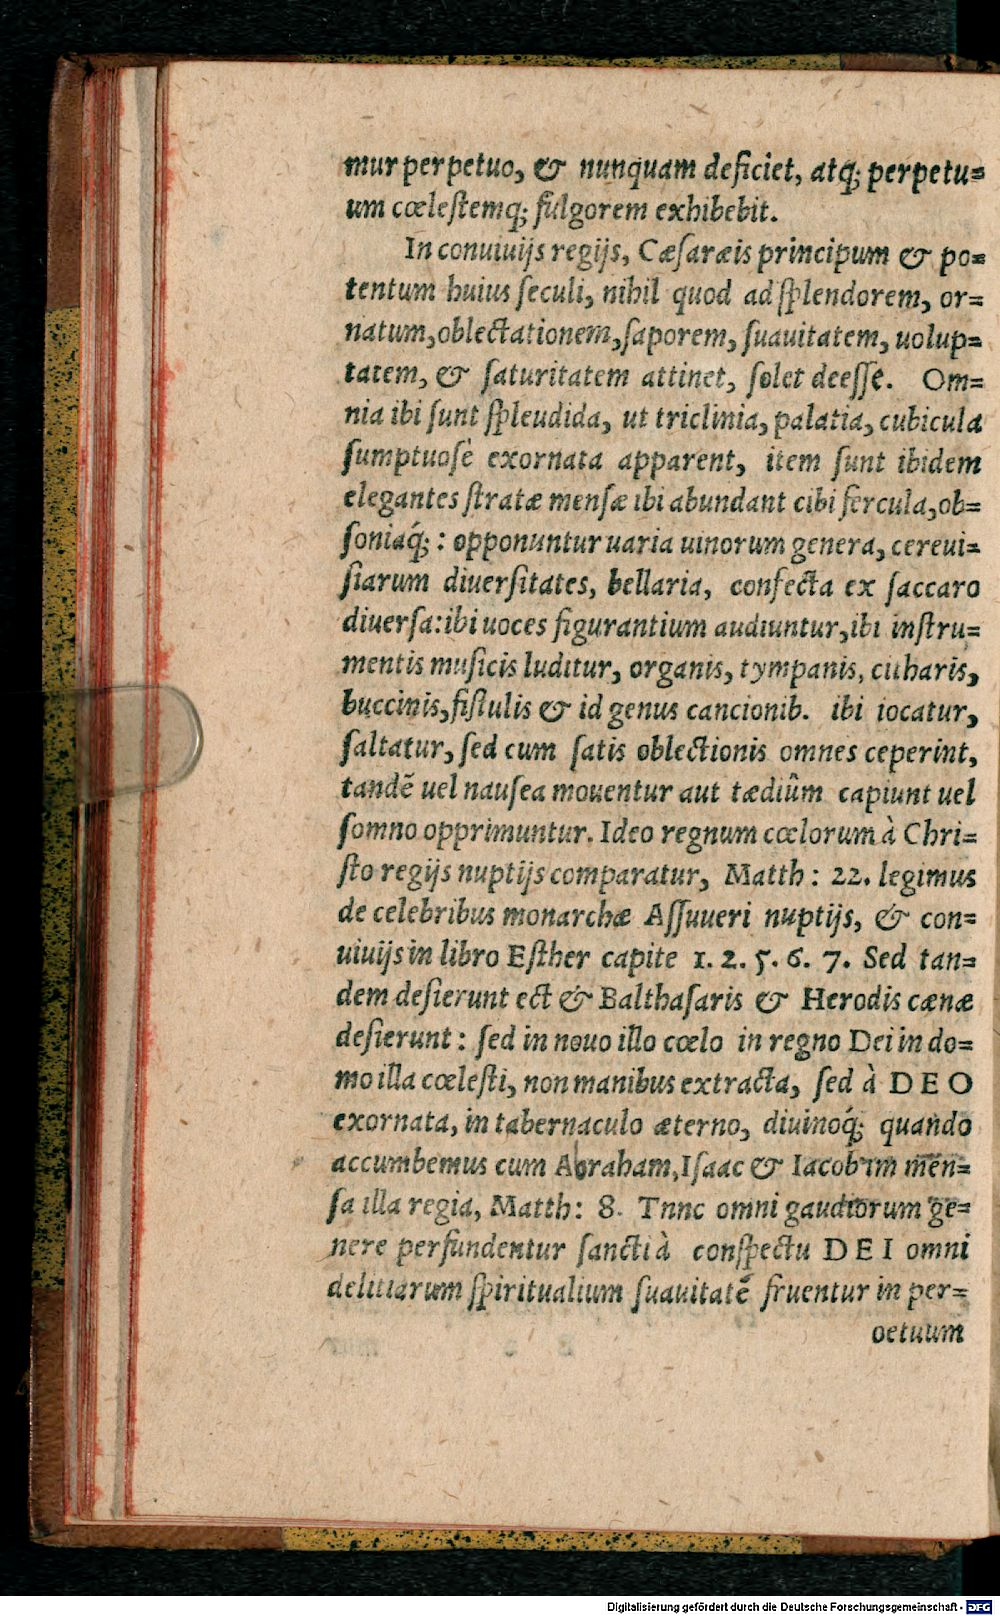 mur perpetuo, & nunquam deficiet, atq; perpetu=
um cœleſtemq; fulgorem exhibebit.
In conuiuijs regijs, Cæſaræis principum & po=
tentum huius ſeculi, nihil quod ad ſplendorem, or=
natum, oblectationem, ſaporem, ſuauitatem, uolup=
tatem, & ſaturitatem attinet, ſolet deeſſe. Om=
nia ibi ſunt ſpleudida, ut triclinia, palatia, cubicula
ſumptuoſè exornata apparent, item ſunt ibidem
elegantes ſtratæ menſæ ibi abundant cibi fercula, ob=
ſoniaq́; : opponuntur uaria uinorum genera, cereui=
ſiarum diuerſitates, bellaria, confecta ex ſaccaro
diuerſa: ibi uoces figurantium audiuntur, ibi inſtru=
mentis muſicis luditur, organis, tympanis, citharis,
buccinis, fiſtulis & id genus cancionib. ibi iocatur,
ſaltatur, ſed cum ſatis oblectionis omnes ceperint,
tandẽ uel nauſea mouentur aut tædiũm capiunt uel
ſomno opprimuntur. Ideo regnum cœlorum à Chri=
ſto regijs nuptijs comparatur, Matth: 22. legimus
de celebribus monarchæ Aſſuueri nuptijs, & con=
uiuijs in libro Eſther capite 1. 2. 5. 6. 7. Sed tan=
dem deſierunt ect & Balthaſaris & Herodis cænæ
deſierunt: ſed in nouo illo cœlo in regno Dei in do=
mo illa cœleſti, non manibus extracta, ſed à DEO
exornata, in tabernaculo æterno, diuinoq́; quando
accumbemus cum Abraham, Iſaac & Iacob im men=
ſa illa regia, Matth: 8. Tnnc omni gaudiorum ge=
nere perfundentur ſancti à conſpectu DEI omni
delitiarum ſpiritualium ſuauitatẽ fruentur in per=
oetuum
Digitalisierung gefördert durch die Deutsche Forschungsgemeinschaft - DFG